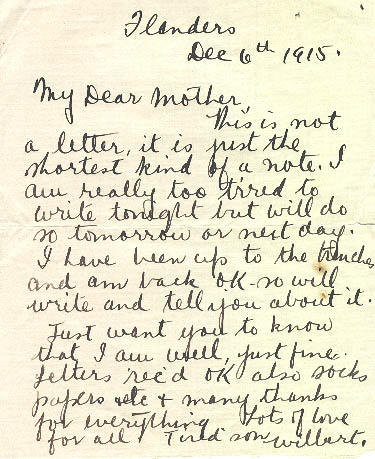 Flanders
Dec 6th 1915.
My Dear Mother,
This is not
a letter, it is just the
shortest kind of a note. I
am really too tired to
write tonight but will do
so tomorrow or next day.
I have been up to the trenches
and am back OK so will
write and tell you about it.
Just want you to know
that I am well, just fine.
Letters rec'd OK also socks
papers etc & many thanks
for everything Lots of love
for all Tired son Wilbert.